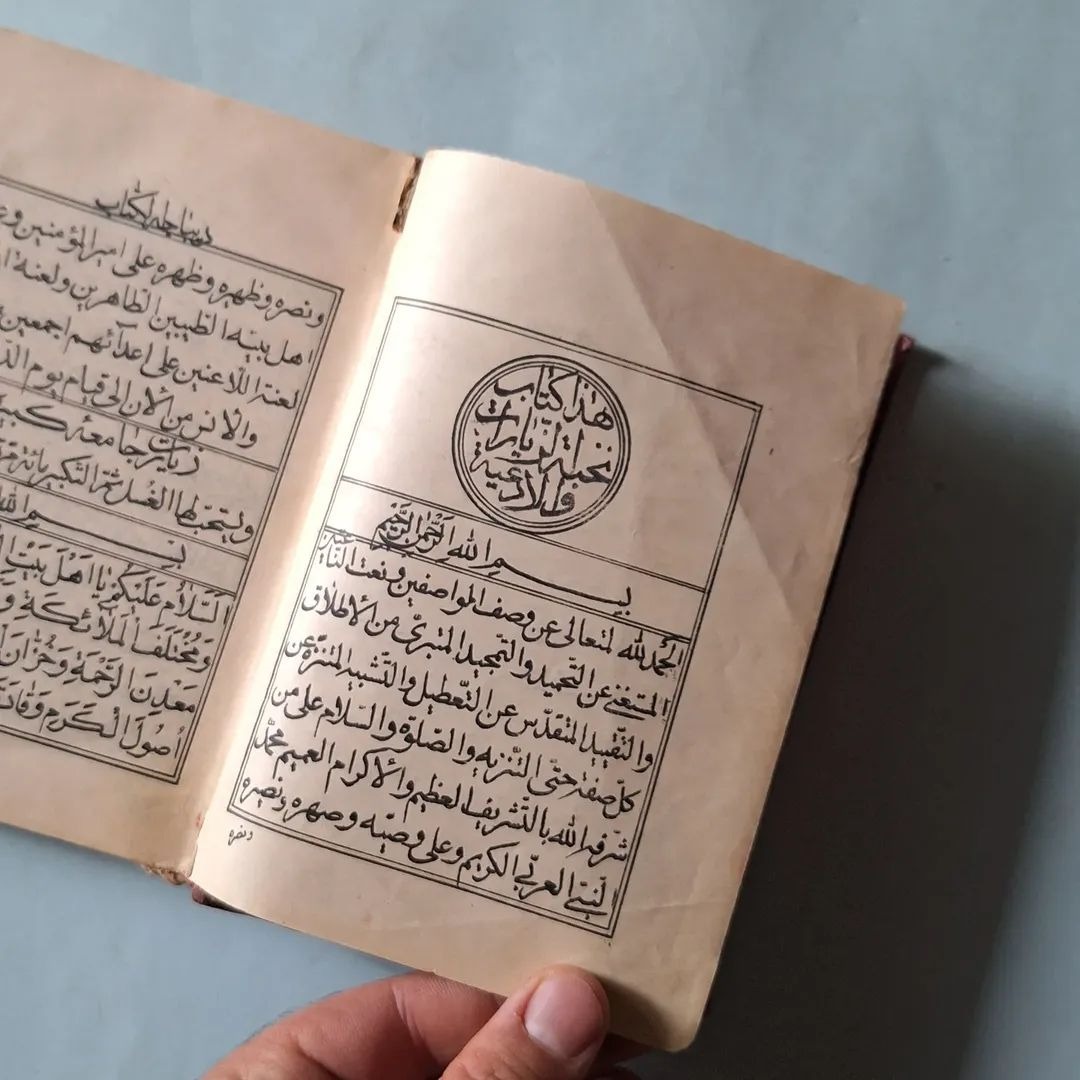 هذا كتاب
نخبة الزيارات
والادعية
بسم الله الرحمن الرحيم
الحمد لله المتعالی عن وصف الواصفين ونعت الناعتين
المستغنی عن التحميد والتمجيد المتبری من الاطلاق
والتقييد المتقدّس عن التّعطيل والتّشبيه المتنزه عن
كلّ صفة حتّی التّنزيه والصّلوة والسّلام علی من
شرّفه الله بالتّشريف العظيم والاكرام العميم محمّد
النّبیّ العربیّ الكريم وعلی وصيّه وصهره ونصره
ونصره
ديباجه كتاب
ونصره وظهيره وظهره علی امير المؤمنين و
اهل بيته الطّيبين الطّاهرين ولعنة
لعنة اللّاعنين علی اعدآئهم اجمعين
والان من الان الی قيام يوم
زيارت جامعۀ كبيره
ويستحبّ لها الغسل ثمّ التكبير مائة
بسم الله
السَّلامُ عَلَيْكُمْ يا اَهْلَ بَيْتِ
وَمُخْتَلَفَ الْمَلآئِكَةِ وَ
مَعْدِنَ الرَّحْمَةِ وَخُزّانَ
اُصُولَ الْكَرَمِ وَقادَةَ